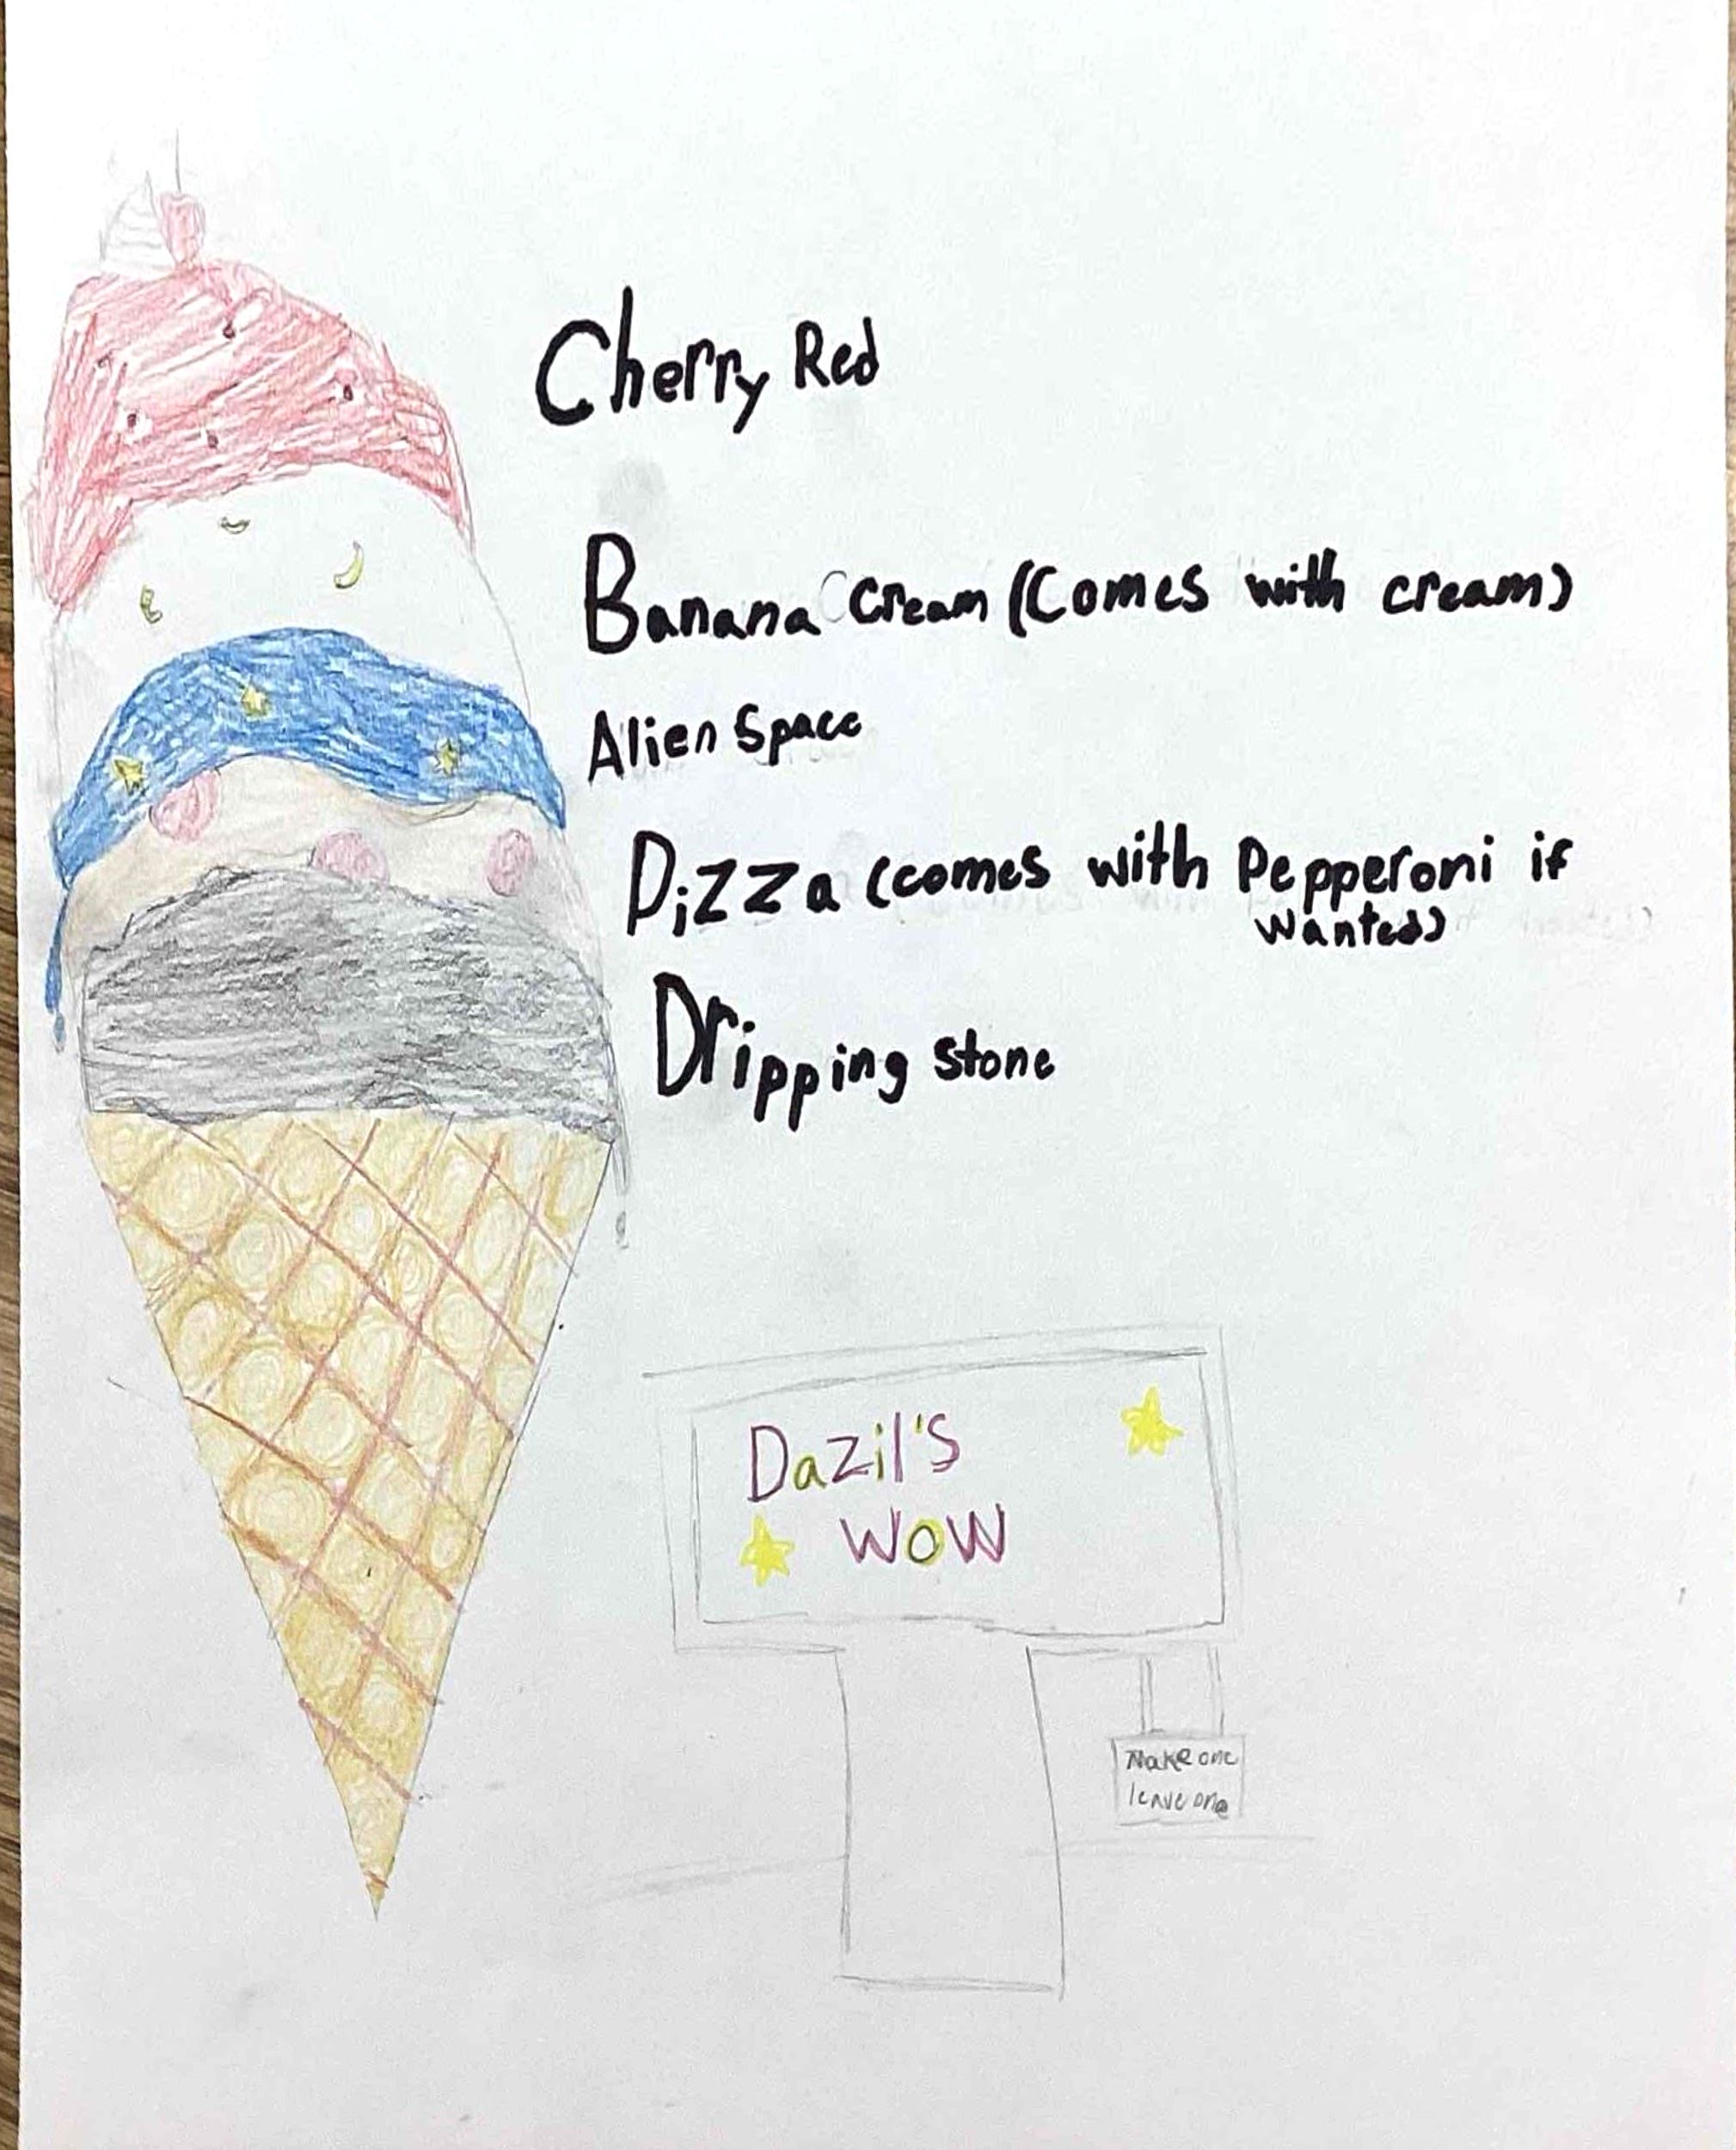 Cherry Red
Banana Cream (Comes with cream)
Alien Space
Pizza (comes with Pepperoni if
wanted)
Dripping stone
Dazil's
WOW
Make one
leave one